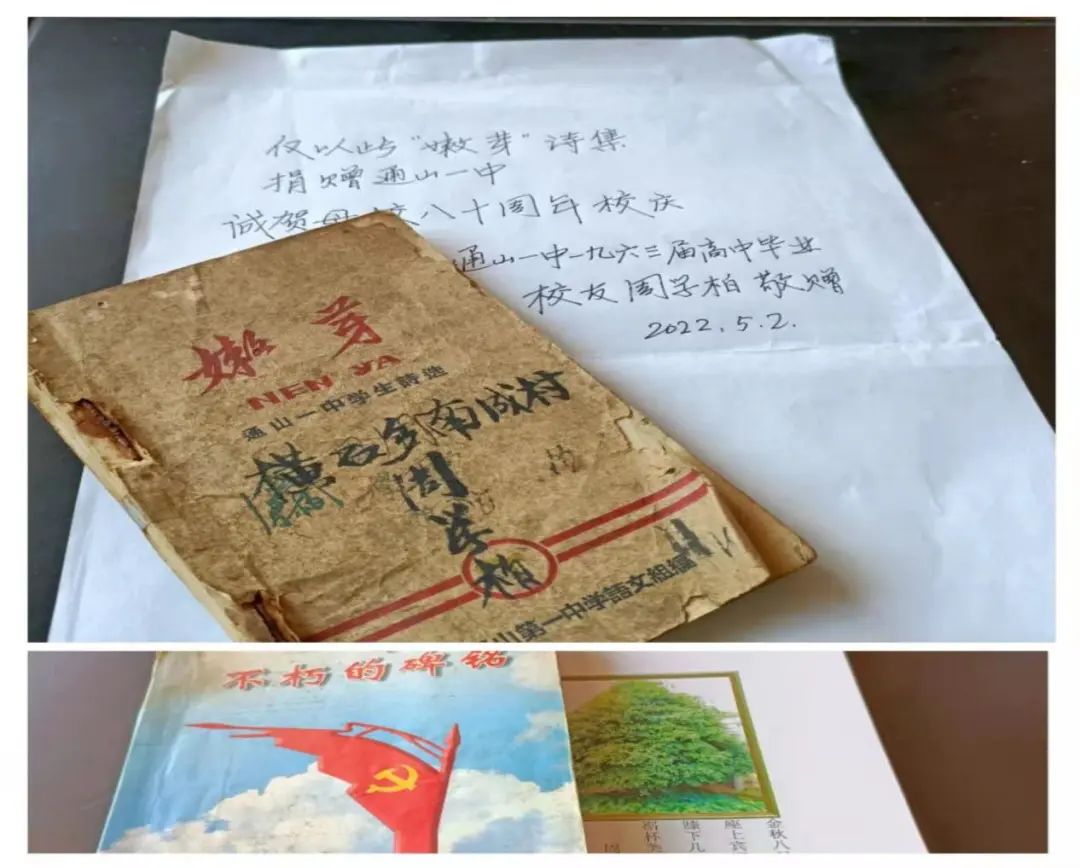 仅以此"嫩芽"诗集
捐赠通山一中
诚贺母校八十周年校庆
通山一中一九六三届高中毕业
校友周学柏敬赠
2022.5.2.
嫩芽
NEN YA
通山一中学生詩选
南成村
周
学
柏
山第一中学語文組編
不朽的碑铭
金秋八
座上宾
膝下儿